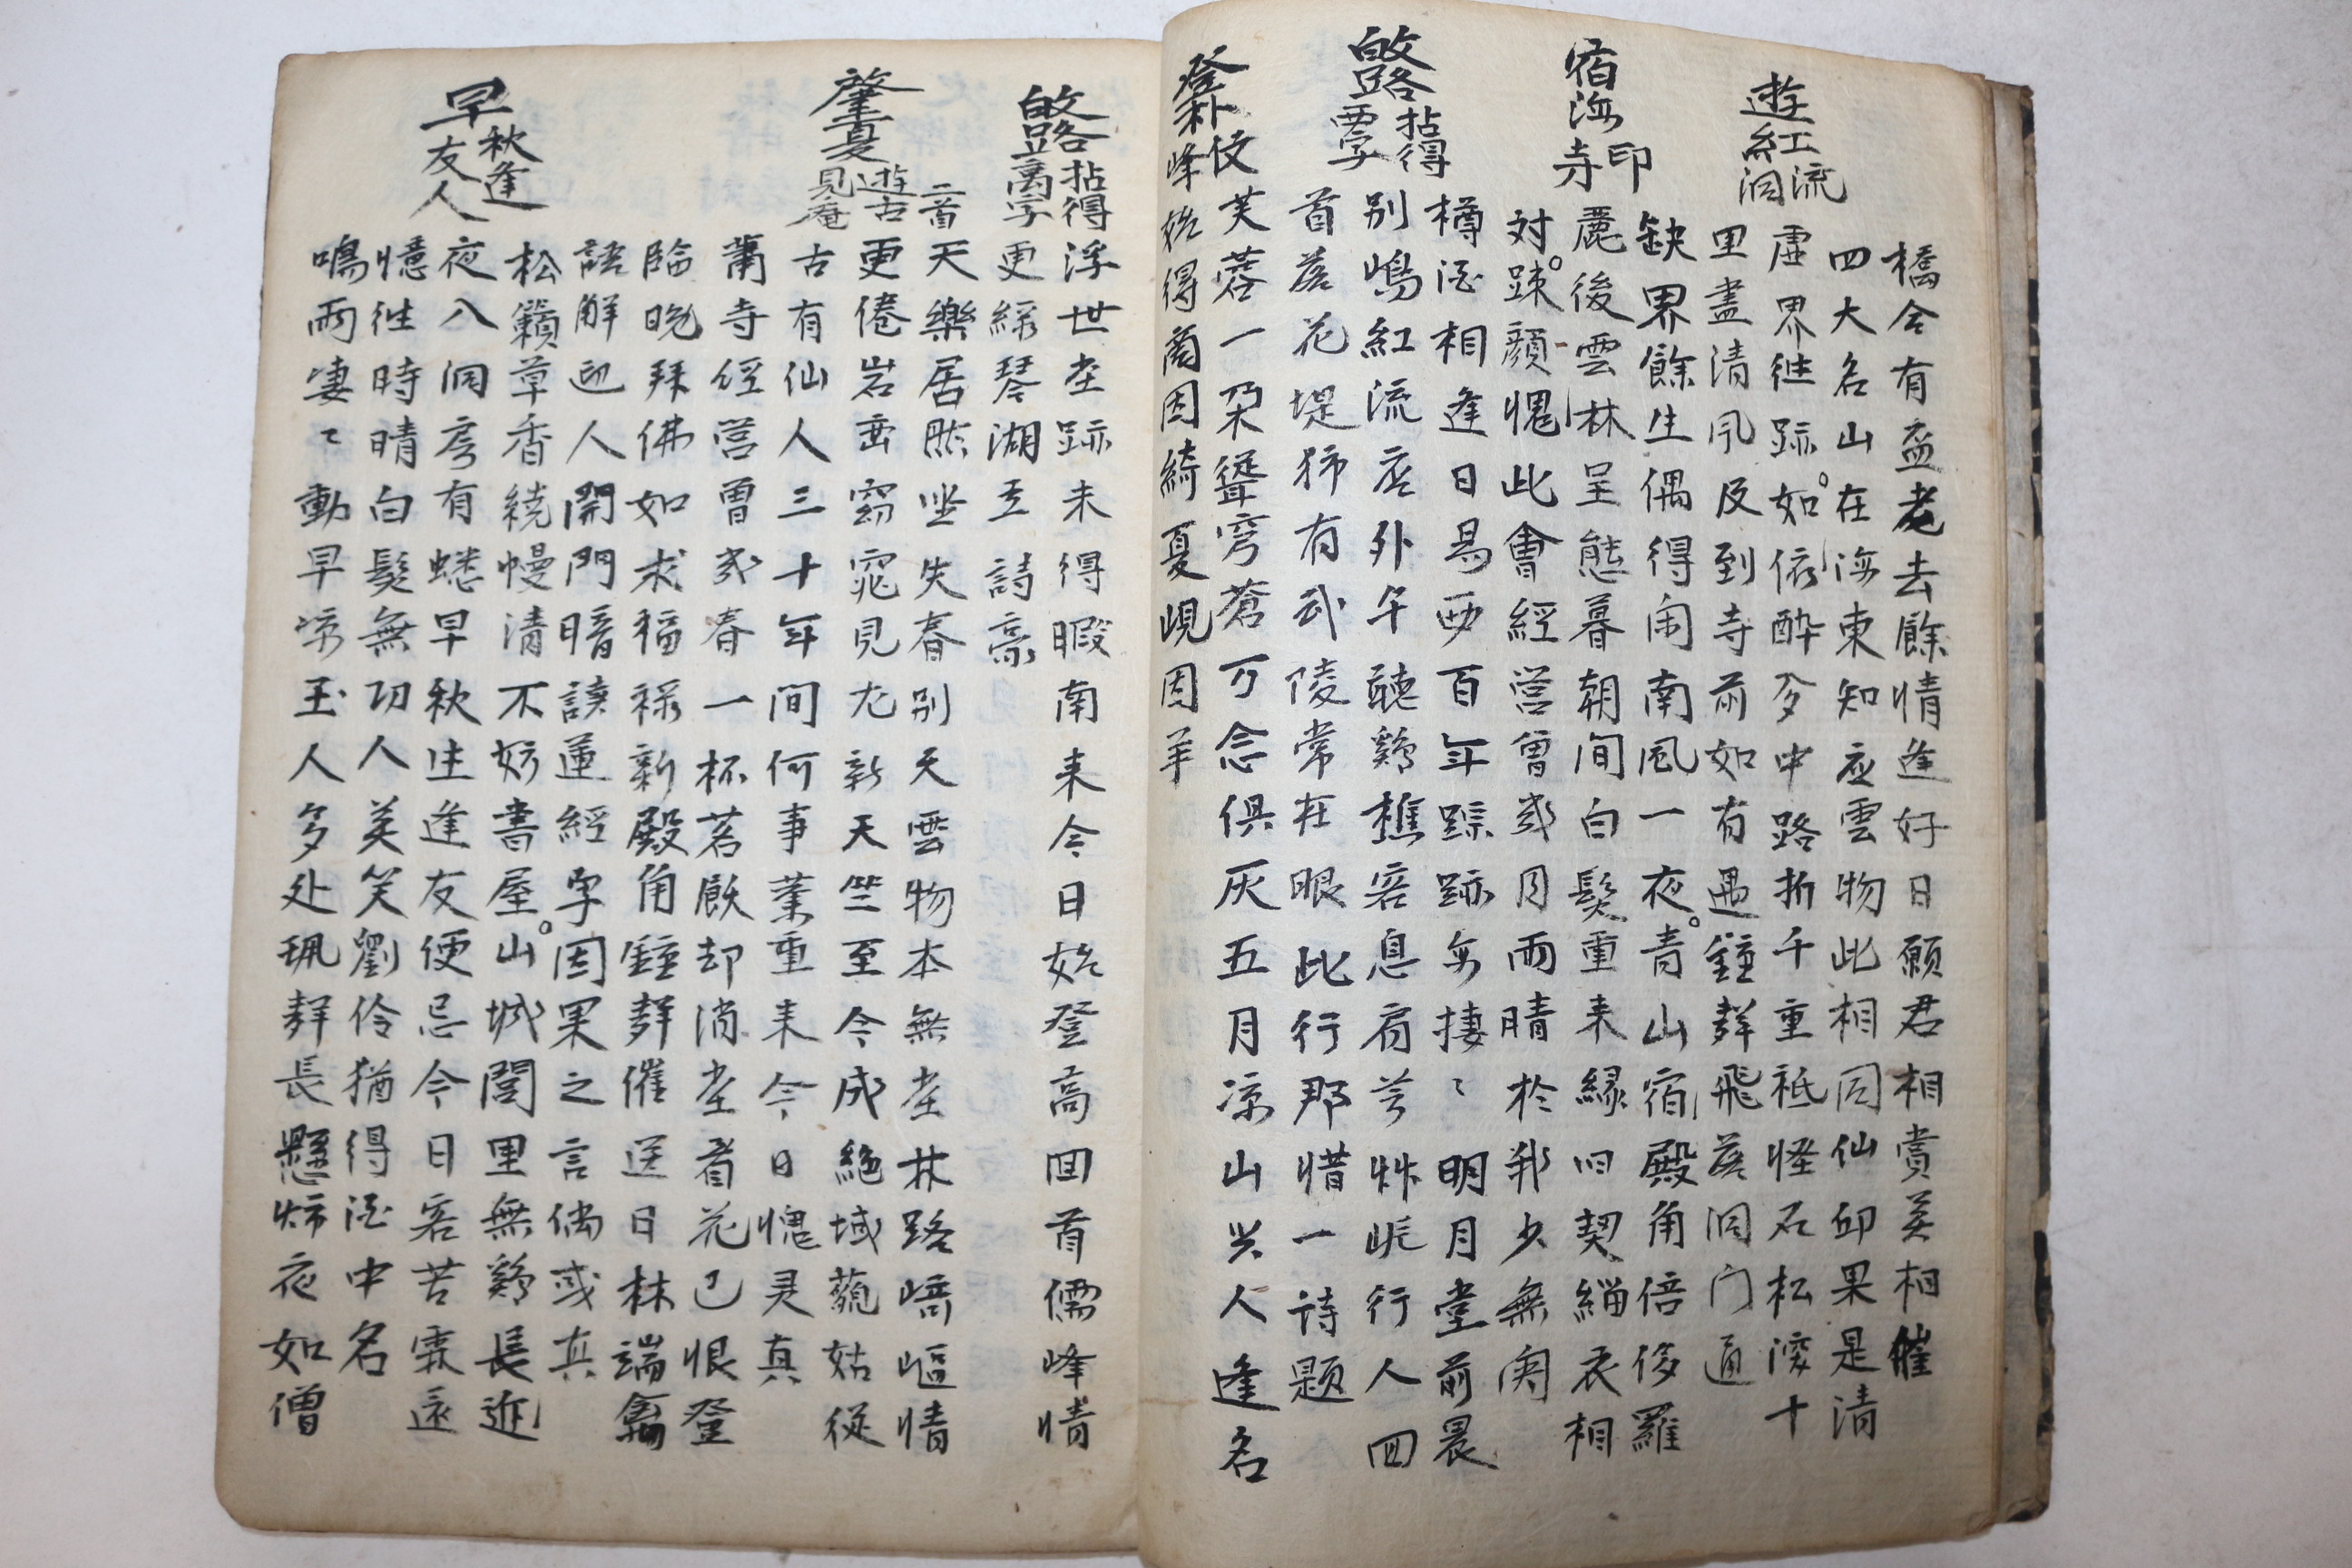 橋令有盃老去餘情逢好日願君相賞莫相催
遊紅流洞
四大名山在海東知應雲物此相同仙邱果是清
虛界徃跡如依酔夛中路折千重祗怪石松濤十
里盡清風及到寺前如有遇鍾聲飛落洞门通
宿海印寺
缺界餘生偶得闲南風一夜青山宿殿角倍侈羅
麗後雲林呈態暮朝间白髮重来縁旧契緇衣相
対踈顔愧此會經营曾幾月雨晴於我少無関
路拈得西字
樽酒相逢日易西百年踪跡每捿〻明月堂前晨
别嶋紅流底外午聽鷄樵客息肩芳艸岐行人回
首落花堤猶有武陵常在眼此行那惜一诗题
登朴伩峰
芙蓉一朶聳穹蒼万念俱灰五月凉山兴人逢名
始得商因綺夏峴因羊
路拈得高字
浮世坐跡未得暇南来今日始登高回首儒峰情
更綠琴湖五詩豪
肇夏遊古見庵二首
天樂居然坐失春别天雲物本無尘林路崎嶇情
更倦岩壺窈窕見尤新天竺至今成絶域藐姑従
古有仙人三十年间何事業重来今日愧灵真
蕭寺經营曽幾春一杯茗厭却消尘看花已恨登
臨晚拜佛如求福禄新殿角鍾聲催送日林端禽
語解迎人開門暗讀蓮經字因果之言倘或真
早秋逢友人
松籟草香繞幔清不妨書屋山城閭里無鷄長近
夜八洞房有蟋早秋生逢友便忌今日客苦霖遠
憶徃時晴白髮無功人莫笑劉伶猶得酒中名
鳴雨凄〻動早凉玉人多处珮聲長懸灯夜如僧